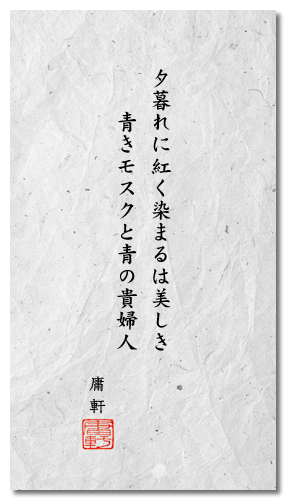 夕暮れに紅く染まるは美しき
青きモスクと青の貴婦人
庸軒
庸軒